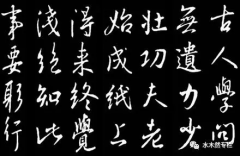 古人學問
無遺力少
壯功夫老
始成紙上
得来終覺
淺絕知此
事要躬行
水木然专栏